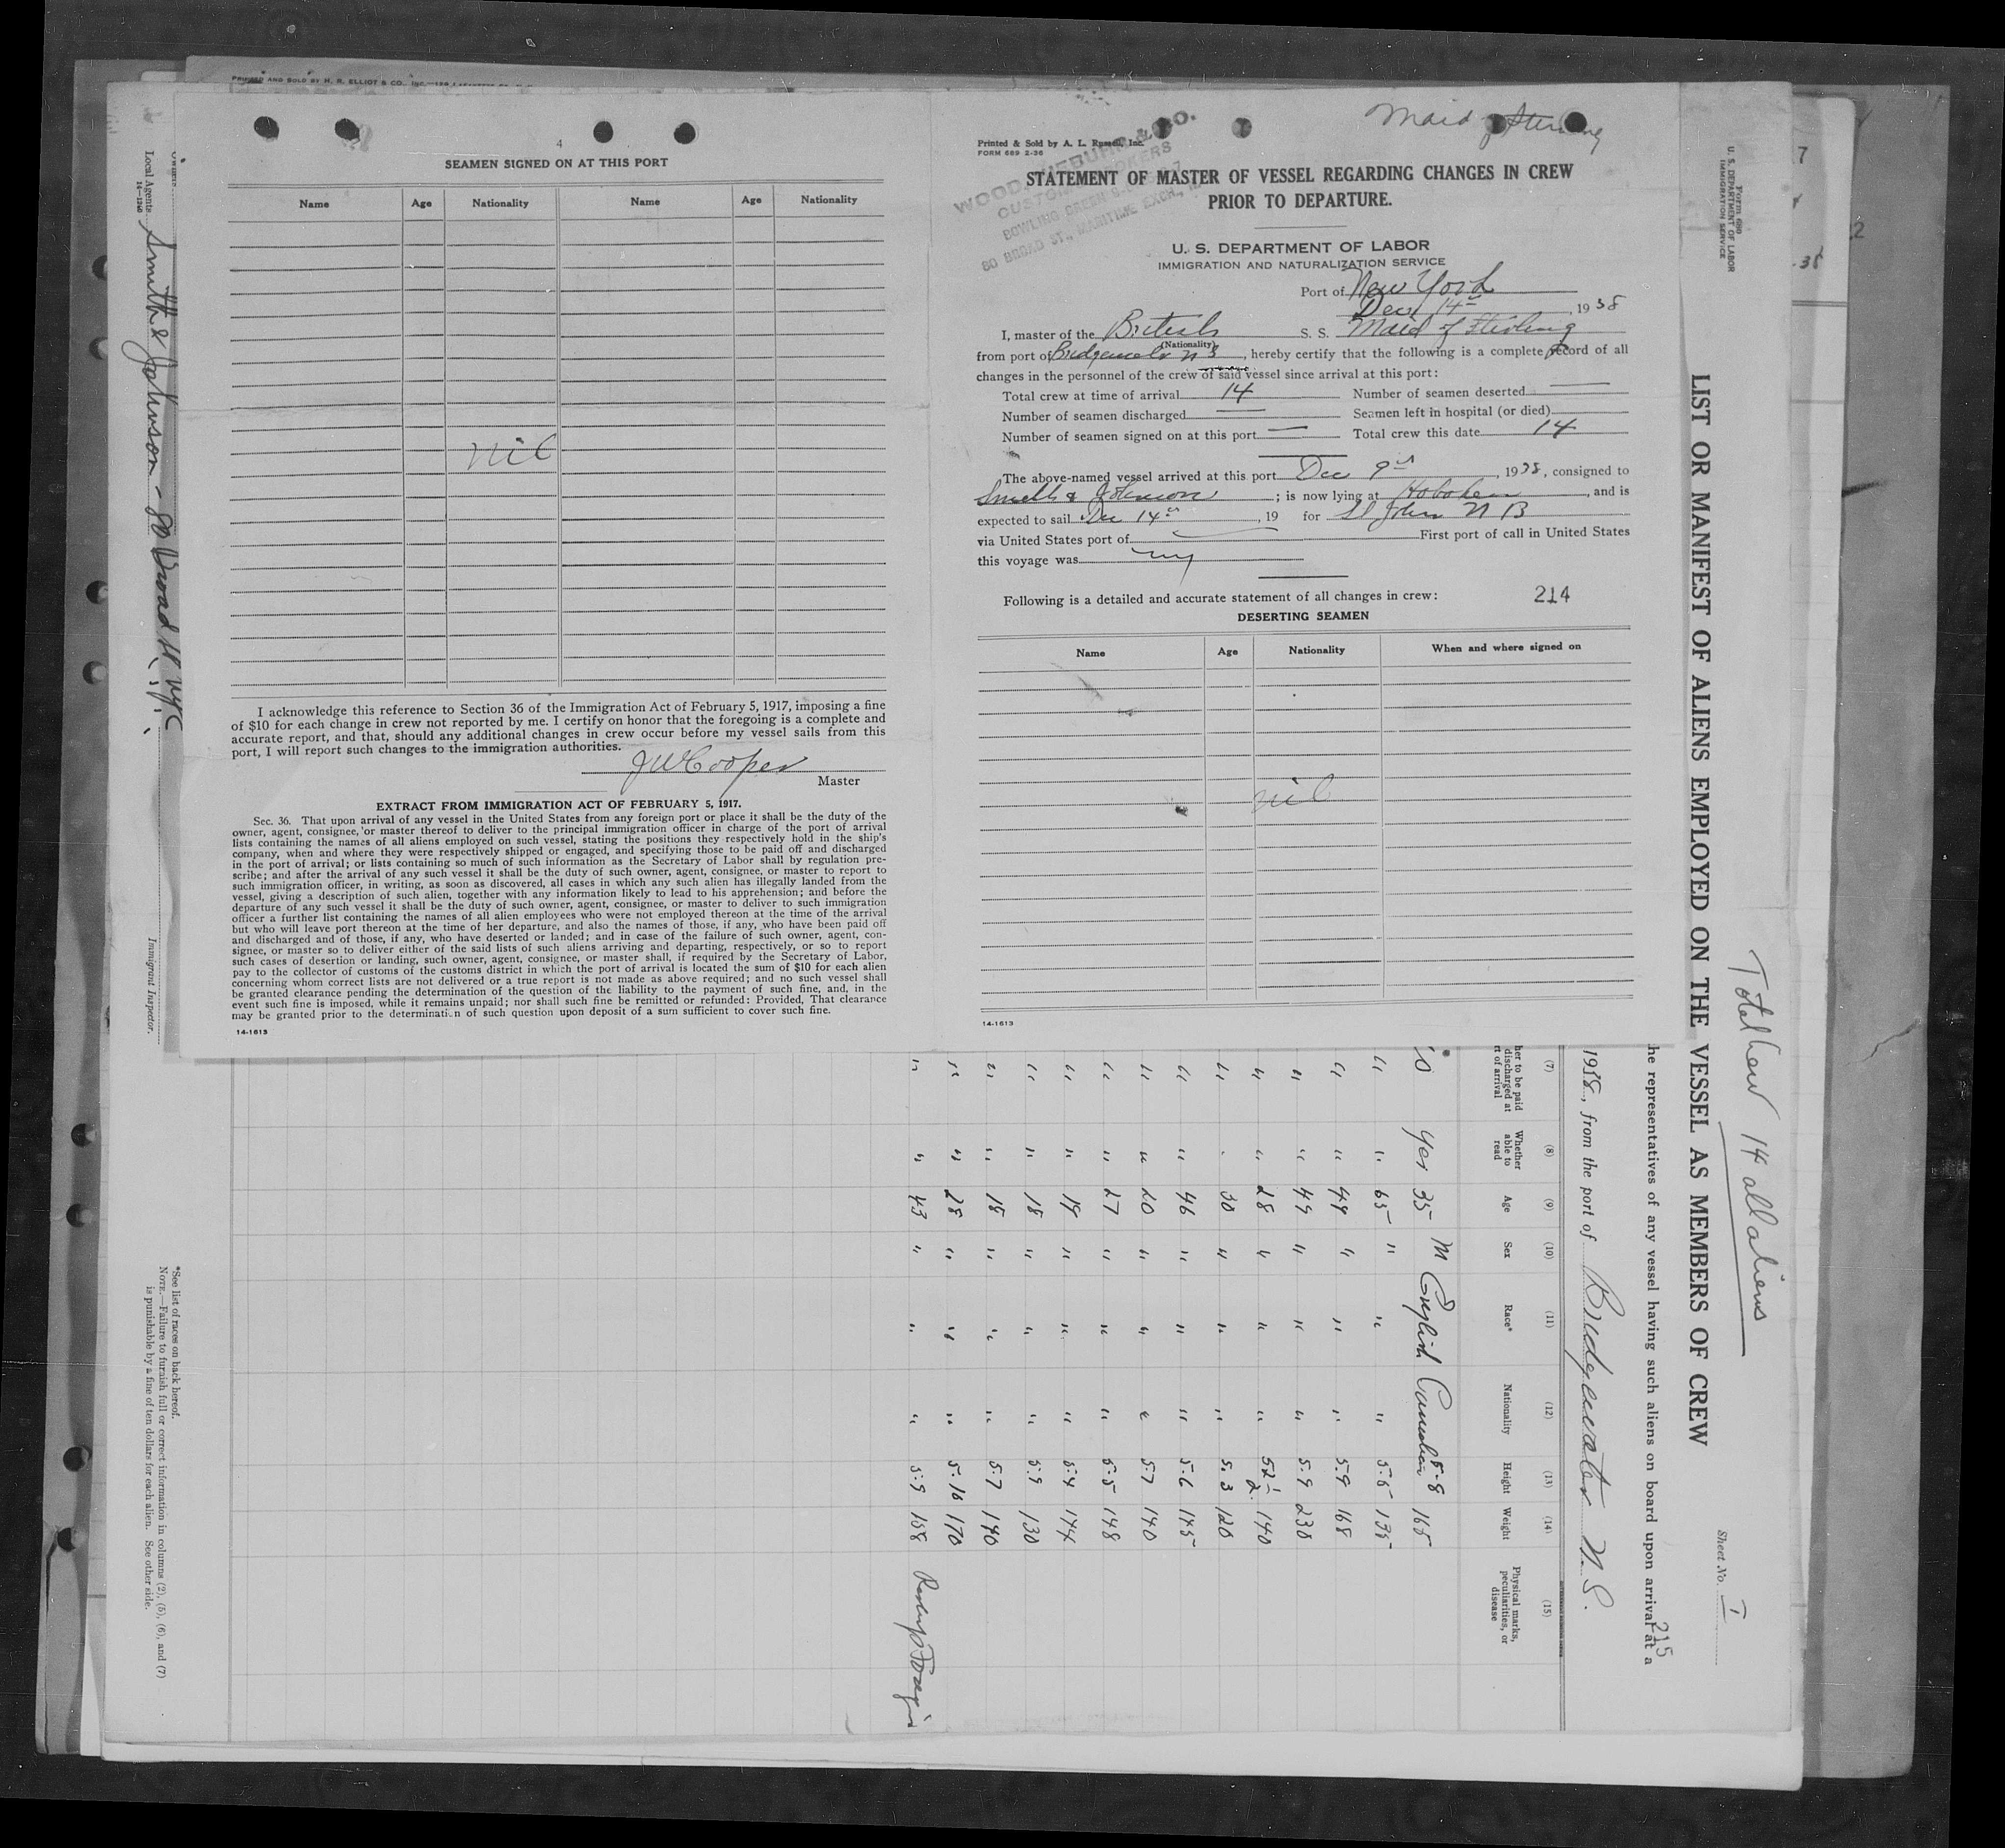 PRINTED AND SOLD BY H. R. ELLIOT & CO., INC.
4
SEAMEN SIGNED ON AT THIS PORT
Name Age Nationality Name Age Nationality
nil
I acknowledge this reference to Section 36 of the Immigration Act of February 5, 1917, imposing a fine
of $10 for each change in crew not reported by me. I certify on honor that the foregoing is a complete and
accurate report, and that, should any additional changes in crew occur before my vessel sails from this
port, I will report such changes to the immigration authorities.
JWCooper
Master
EXTRACT FROM IMMIGRATION ACT OF FEBRUARY 5, 1917.
Sec. 36. That upon arrival of any vessel in the United States from any foreign port or place it shall be the duty of the
owner, agent, consignee, or master thereof to deliver to the principal immigration officer in charge of the port of arrival
lists containing the names of all aliens employed on such vessel, stating the positions they respectively hold in the ship's
company, when and where they were respectively shipped or engaged, and specifying those to be paid off and discharged
in the port of arrival; or lists containing so much of such information as the Secretary of Labor shall by regulation pre-
scribe; and after the arrival of any such vessel it shall be the duty of such owner, agent, consignee, or master to report to
such immigration officer, in writing, as soon as discovered, all cases in which any such alien has illegally landed from the
vessel, giving a description of such alien, together with any information likely to lead to his apprehension; and before the
departure of any such vessel it shall be the duty of such owner, agent, consignee, or master to deliver to such immigration
officer a further list containing the names of all alien employees who were not employed thereon at the time of the arrival
but who will leave port thereon at the time of her departure, and also the names of those, if any, who have been paid off
and discharged and of those, if any, who have deserted or landed; and in case of the failure of such owner, agent, con-
signee, or master so to deliver either of the said lists of such aliens arriving and departing, respectively, or so to report
such cases of desertion or landing, such owner, agent, consignee, or master shall, if required by the Secretary of Labor,
pay to the collector of customs of the customs district in which the port of arrival is located the sum of $10 for each alien
concerning whom correct lists are not delivered or a true report is not made as above required; and no such vessel shall
be granted clearance pending the determination of the question of the liability to the payment of such fine, and, in the
event such fine is imposed, while it remains unpaid; nor shall such fine be remitted or refunded: Provided, That clearance
may be granted prior to the determination of such question upon deposit of a sum sufficient to cover such fine.
14-1613
Maid of Sterling
Printed & Sold by A. L. Russell, Inc.
FORM 689 2-36
CUSTOM BROKERS
BOWLING GREEN
80 BROAD ST., MARITIME EXCH.
STATEMENT OF MASTER OF VESSEL REGARDING CHANGES IN CREW
PRIOR TO DEPARTURE.
U. S. DEPARTMENT OF LABOR
IMMIGRATION AND NATURALIZATION SERVICE
Port of New York
Dec 14th, 1938
I, master of the British S. S. Maid of Stirling
(Nationality)
from port of Bridgewater N S, hereby certify that the following is a complete record of all
changes in the personnel of the crew of said vessel since arrival at this port:
Total crew at time of arrival 14 Number of seamen deserted —
Number of seamen discharged — Seamen left in hospital (or died)
Number of seamen signed on at this port — Total crew this date 14
The above-named vessel arrived at this port Dec 9th, 1938, consigned to
Smith & Johnson; is now lying at Hoboken, and is
expected to sail Dec 14th, 19 for St John N B
via United States port of First port of call in United States
this voyage was ny
Following is a detailed and accurate statement of all changes in crew: 214
DESERTING SEAMEN
Name Age Nationality When and where signed on
nil
14-1613
Form 680
U. S. DEPARTMENT OF LABOR
IMMIGRATION SERVICE
Total Crew 14 all aliens
Sheet No. I
LIST OR MANIFEST OF ALIENS EMPLOYED ON THE VESSEL AS MEMBERS OF CREW
215
he representatives of any vessel having such aliens on board upon arrival at a
1938, from the port of Bridgewater N.S.
(7) (8) (9) (10) (11) (12) (13) (14) (15)
her to be paid discharged at rt of arrival
Whether able to read
Age
Sex
Race*
Nationality
Height
Weight
Physical marks, peculiarities, or disease
Yes 35 M English Canadian 5-8 165
" " 65 " " " 5.5 135
" " 49 " " " 5.9 168
" " 49 " " " 5.9 238
" " 28 " " " 5 2 1/2 140
" 30 " " " 5.3 120
" " 46 " " " 5.6 145
" " 20 " " " 5.7 140
" " 27 " " " 5.5 148
" " 19 " " " 5.4 144
" " 18 " " " 5.9 130
" " 18 " " " 5.7 140
" " 28 " " " 5.10 170
" " 43 " " " 5.9 158
*See list of races on back hereof.
NOTE.—Failure to furnish full or correct information in columns (2), (5), (6), and (7)
is punishable by a fine of ten dollars for each alien. See other side.
Immigrant Inspector.
Owners
Local Agents Smith & Johnson - 80 Broad St NYC
14-1240